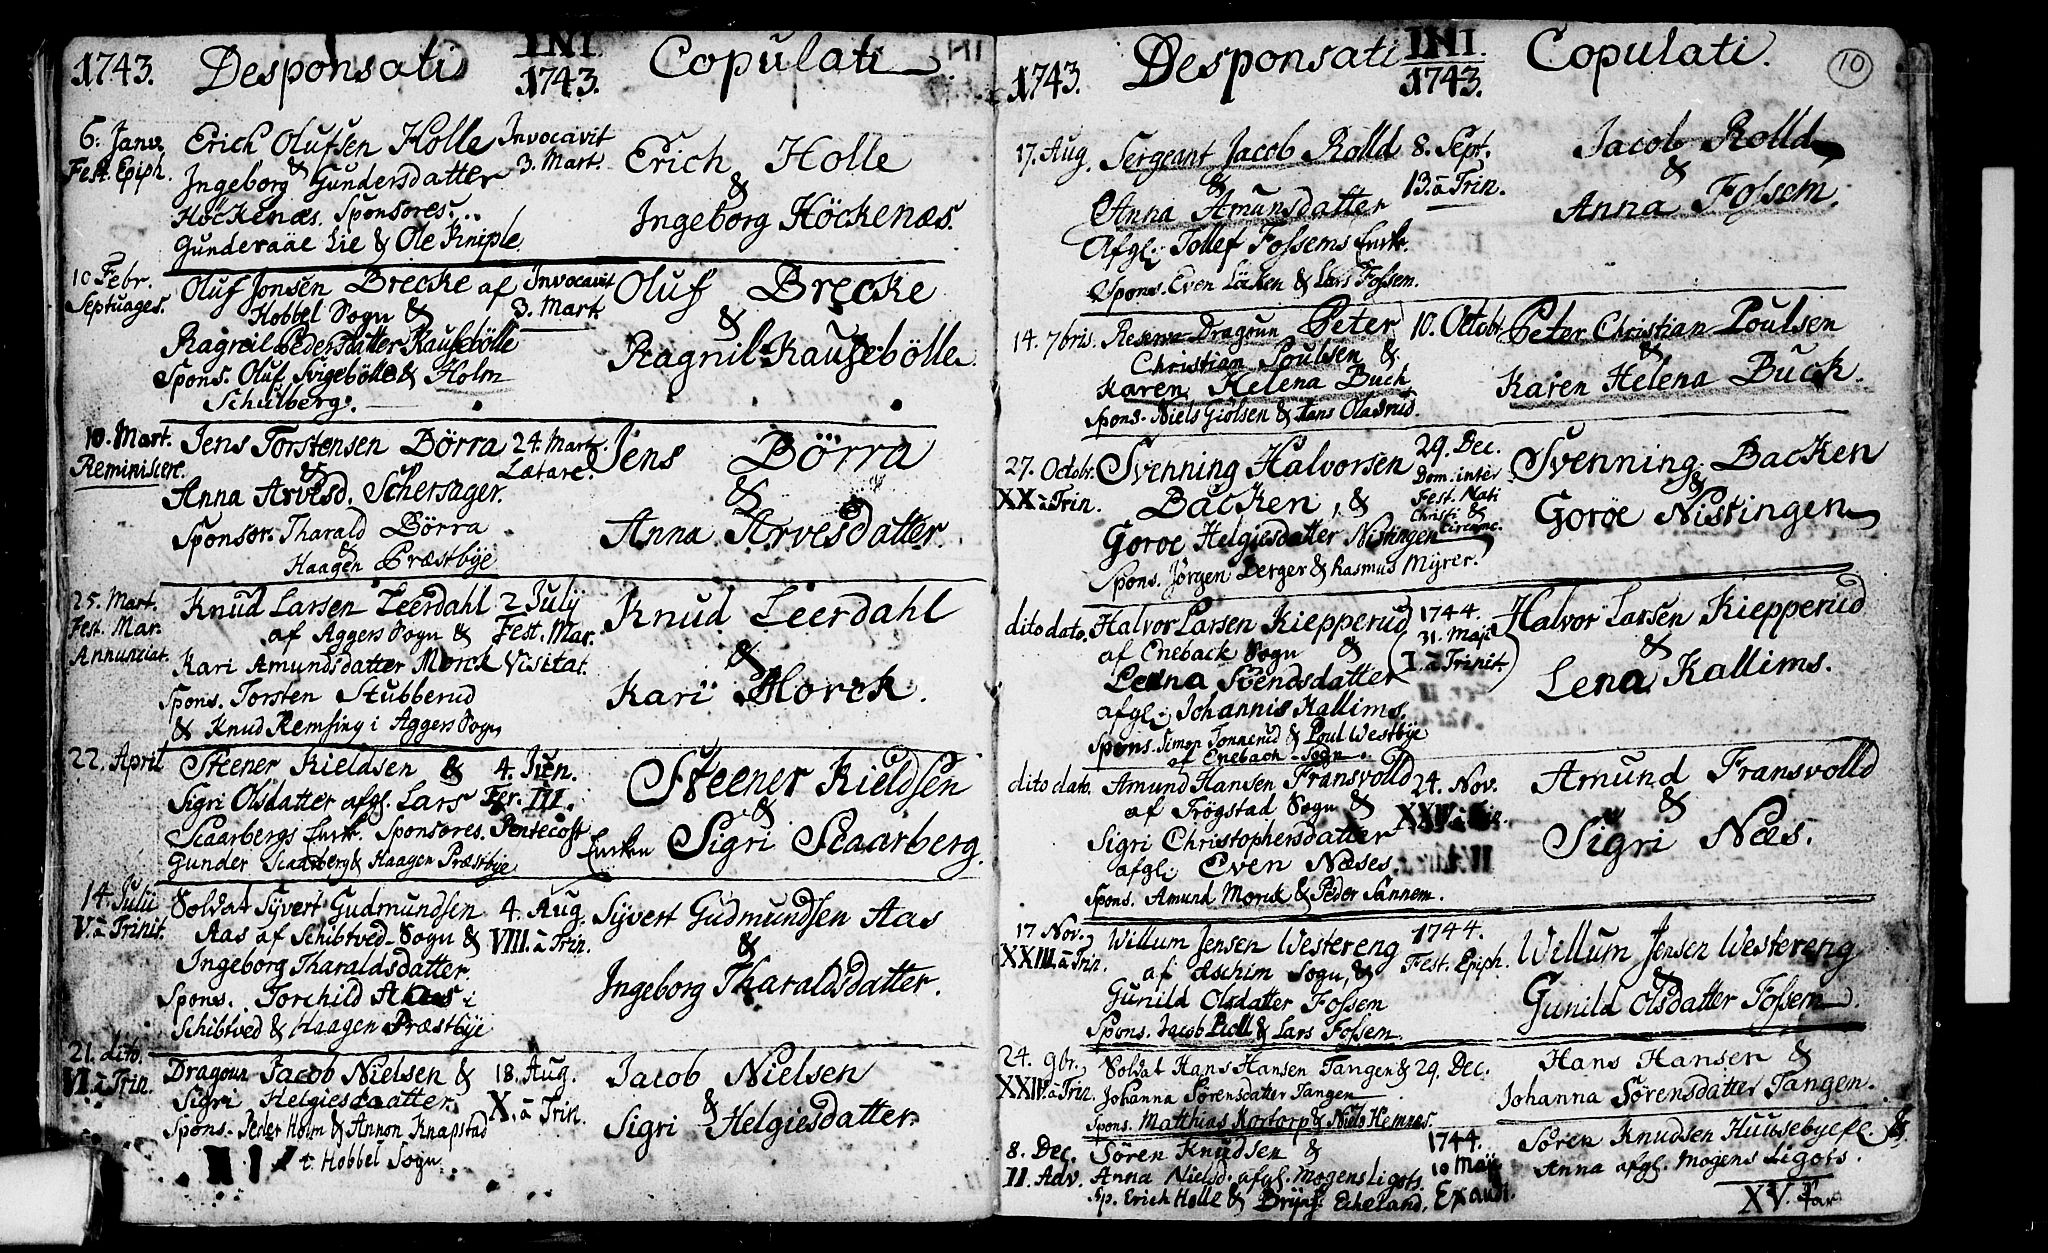 1743. Desponsati INI 1743. Copulati
6. Janv. Fest. Epiph.
Erich Olufsen Holle
&
Ingeborg Gundersdatter
Höckenæs. Sponsores.
Gunderaäe Lie & Ole Kniple
Invocavit
3. Mart.
Erich Holle
&
Ingeborg Höckenæs.
10 Febr.
Septuages.
Oluf Jonsen Brecke af
Hobbel Sogn &
Ragnil Pedersdatter Kausebölle
Spons. Oluf Svigebölle & Holm
Schulberg.
Invocavit
3. Mart.
Oluf Brecke
&
Ragnil Kausebölle.
10. Mart.
Reminiscere.
Jens Torstensen Börra
&
Anna Arvesd. Schersager.
Sponsor. Tharald Börra
&
Haagen Præstbye
24. Mart.
Lætare.
Jens Börra
&
Anna Arvesdatter.
25. Mart.
Fest. Mar.
Annunciat.
Knud Larsen Leerdahl
af Aggers Sogn &
Kari Amundsdatter Morck
Spons. Torsten Stubberud
& Knud Remsing i Aggers Sogn
2 Julij
Fest. Mar.
Visitat.
Knud Leerdahl
&
Kari Morck.
22. April
Steener Kieldsen &
Sigri Olsdatter afgl. Lars
Scaarbergs Enrk. Sponsores.
Gunder Scaarberg & Haagen Præstbye
4. Jun.
Fer. III.
Pentecost
Steener Kieldsen
&
Enrken Sigri Scaarberg.
14. Julii
V. à Trinit.
Soldat Syvert Gudmundsen
Aas af Schibtved Sogn &
Ingeborg Tharaldsdatter.
Spons. Torchild Aas i
Schibtved & Haagen Præstbye
4. Aug.
VIII. à Trin.
Syvert Gudmundsen Aas
&
Ingeborg Tharaldsdatter.
21. dito.
VI. à Trin.
Dragoun Jacob Nielsen &
Sigri Helgiesdaatter.
Spons. Peder Holm & Annon Knapstad
t. Hobbel Sogn.
18. Aug.
X. à Trin.
Jacob Nielsen
&
Sigri Helgiesdatter.
1743. Desponsati INI. 1743. Copulati. 10
17. Aug.
Sergeant Jacob Rolld
&
Anna Amunsdatter
Afgl. Tollef Fossems Enrk.
Spons. Even Löcken & Lars Fossem.
8. Sept.
13. à Trin.
Jacob Rolld
&
Anna Fossem.
14. 7bris.
Reserve Dragoun Peter
Christian Poulsen &
Karen Helena Buck
Spons. Niels Giölsen & Hans Olasrud.
10. Octobr.
Peter Christian Poulsen
&
Karen Helena Buck.
27. Octobr.
XX à Trin.
Svenning Halvorsen
Backen, &
Goroe Helgiesdatter Nistingen
Spons. Jørgen Berger & Rasmus Myrer.
29. Dec.
Dom. inter
Fest. Nati
Christi &
Circumc.
Svenning Backen
&
Goroe Nistingen
dito dato.
Halvor Larsen Kiepperud
af Eneback Sogn &
Lenna Svendsdatter
afgl. Johannis Kallims.
Spons. Simon Tonnerud & Poul Westbye
af Eneback Sogn
1744.
31. Maji
(I. à Trinit.)
Halvor Larsen Kiepperud
&
Lena Kallims.
dito dato.
Amund Hansen Fransvolld
af Frögstad Sogn &
Sigri Christophersdatter
afgl. Even Næses.
Spons. Amund Morck & Peder Sannem.
24. Nov.
XXIV. à Trin.
Amund Fransvolld
&
Sigri Næs.
17 Nov.
XXIII. à Trin.
Willum Jensen Westereng
af Aschim Sogn, &
Gunild Olsdatter Fossem
Spons. Jacob Roll & Lars Fossem.
1744.
Fest. Epiph.
Willum Jensen Westereng
&
Gunild Olsdatter Fossem.
24. 9br.
XXIV. à Trin.
Soldat Hans Hansen Tangen &
Johanna Sörensdatter Tangen
Spons. Matthias Kortorp & Niels Hemnes.
29. Dec.
Hans Hansen &
Johanna Sörensdatter Tangen.
8. Dec.
II. Adv.
Sören Knudsen &
Anna Nielsd. afgl. Mogens Ligots.
Sp. Erich Holle & Brynj. Echeland.
1744.
10 Maji
Exaudi.
Sören Knudsen Huusebye &
Anna afgl. Mogens Ligots.
XV. Par